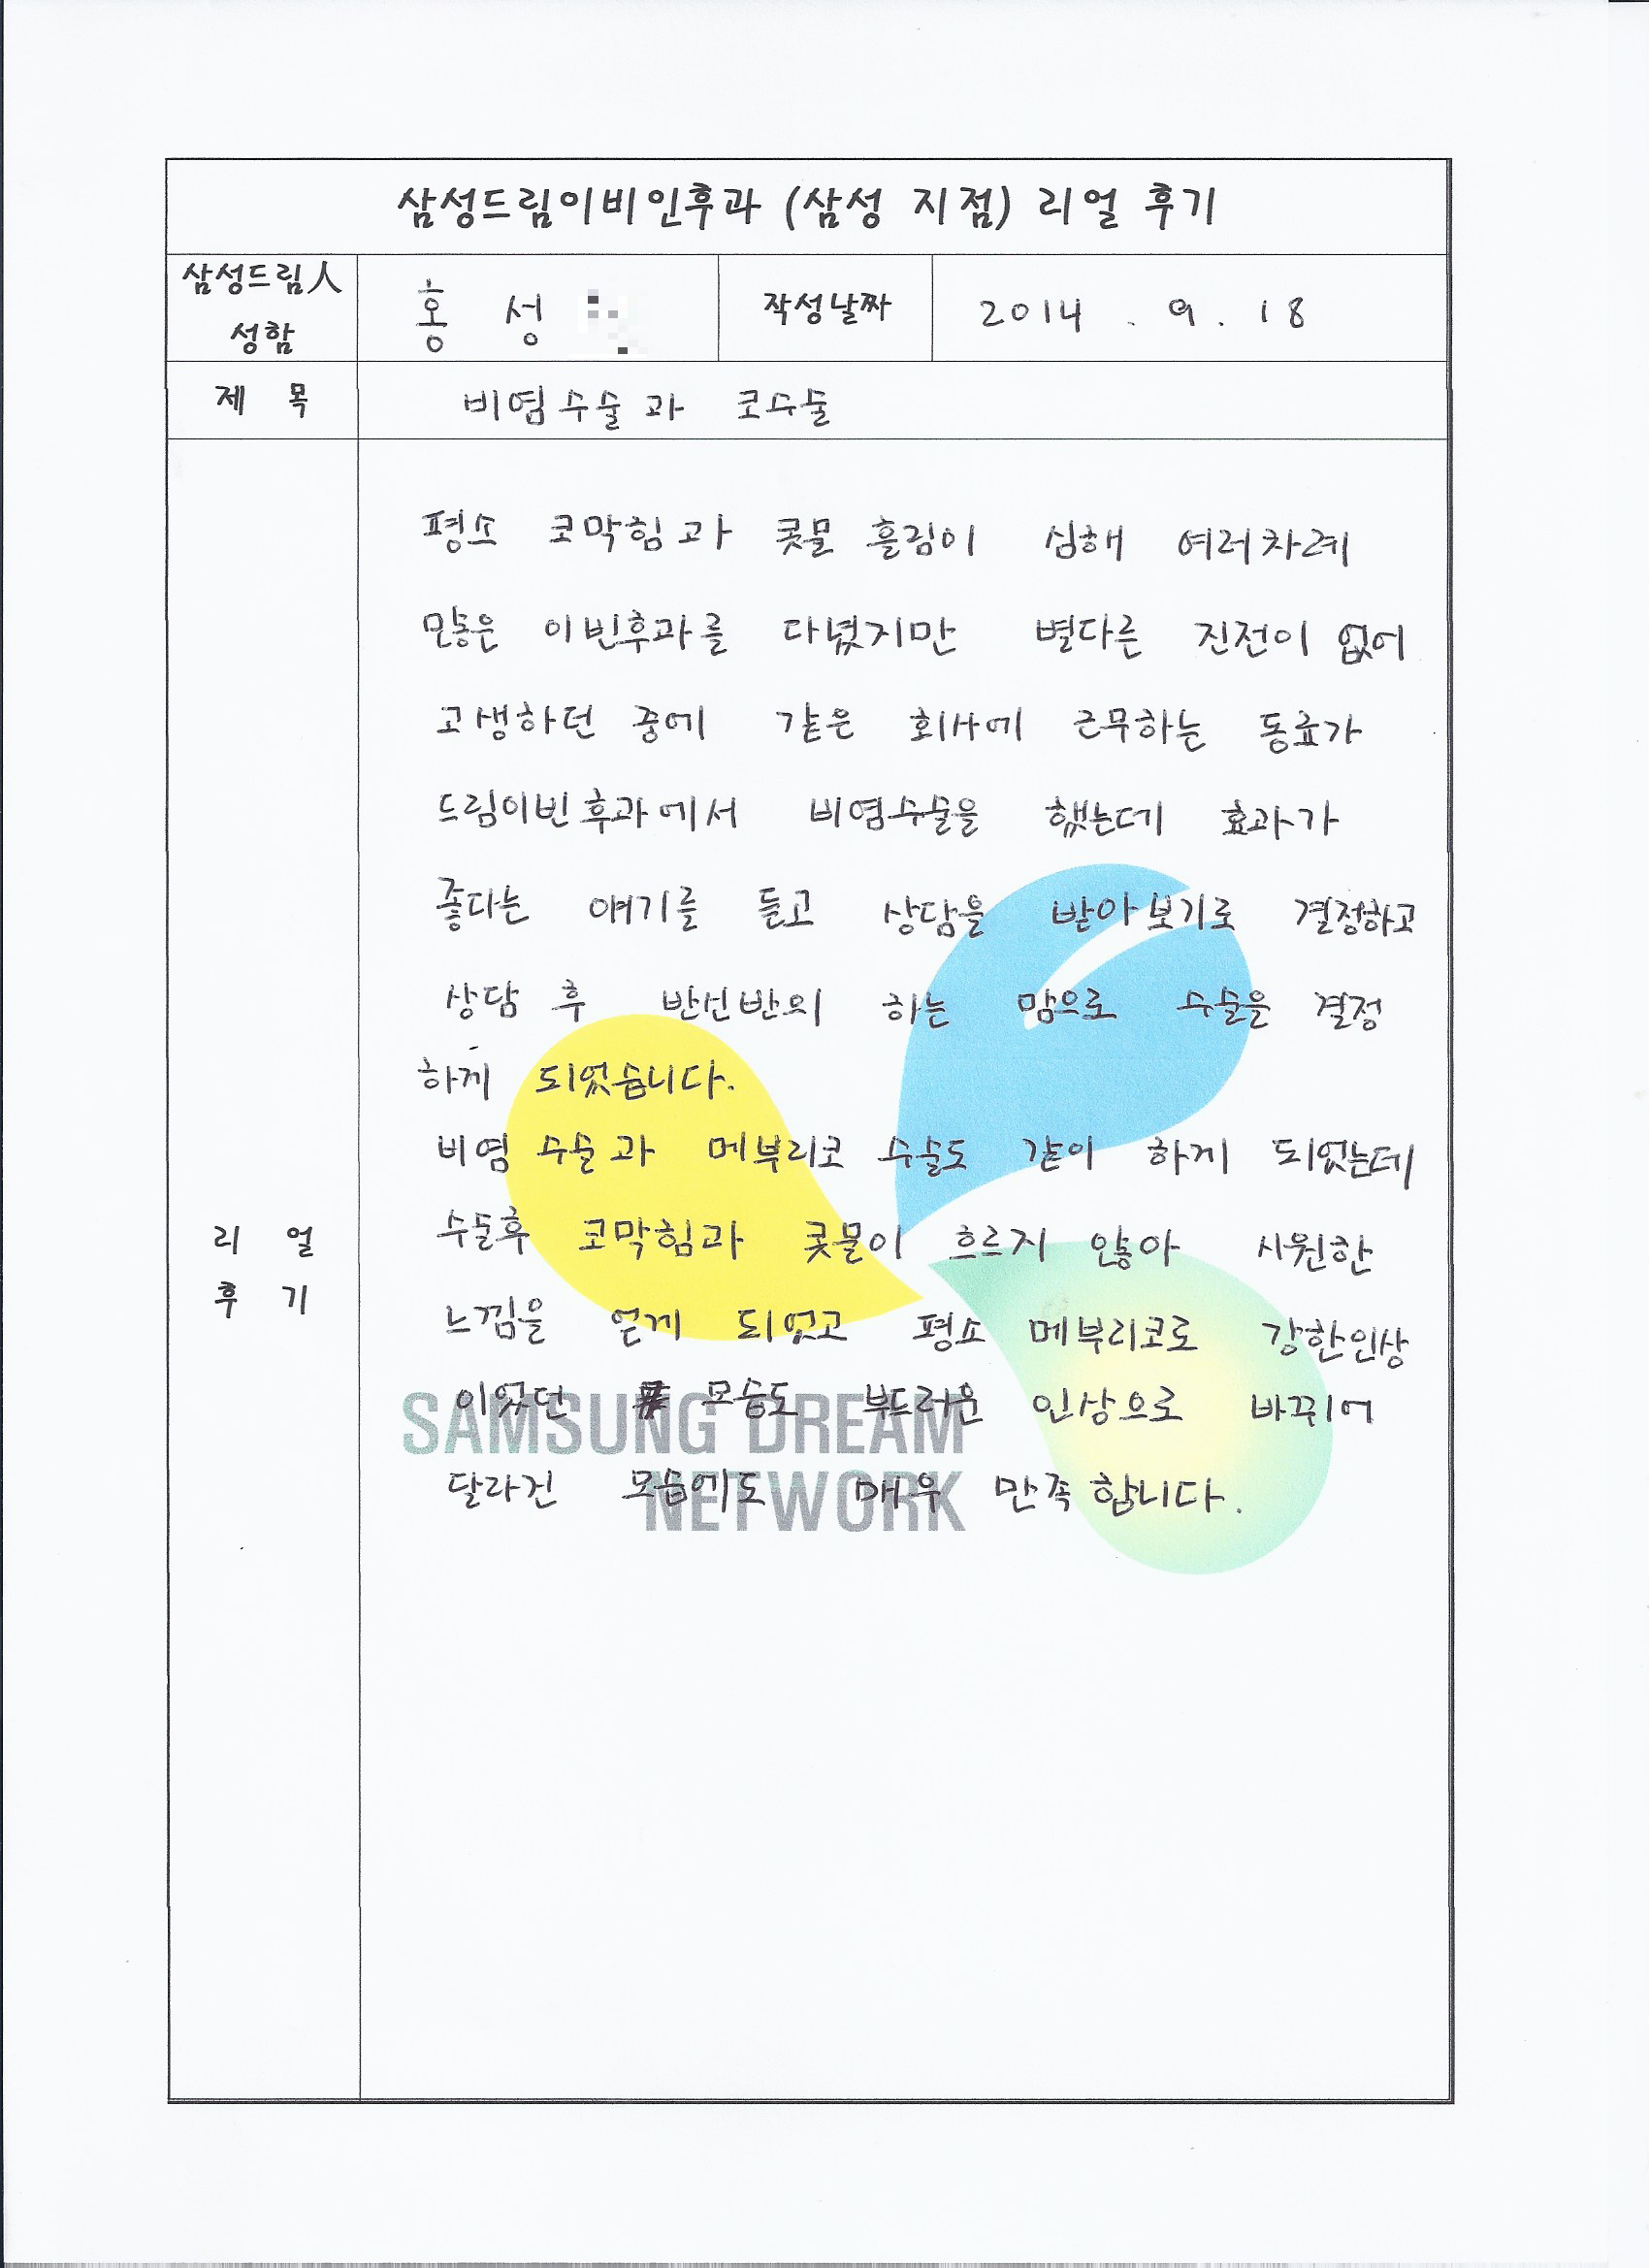 삼성드림이비인후과 (삼성 지점) 리얼 후기
삼성드림人
성함
홍 성
작성날짜
2014 . 9 . 18
제 목
비염수술과 코수술
리 얼
후 기
평소 코막힘과 콧물 흘림이 심해 여러차례
많은 이빈후과를 다녔지만 별다른 진전이 없어
고생하던 중에 같은 회사에 근무하는 동료가
드림이빈후과에서 비염수술을 했는데 효과가
좋다는 얘기를 듣고 상담을 받아보기로 결정하고
상담 후 반신반의 하는 맘으로 수술을 결정
하게 되었습니다.
비염 수술과 메부리코 수술도 같이 하게 되었는데
수술후 코막힘과 콧물이 흐르지 않아 시원한
느낌을 얻게 되었고 평소 메부리코로 강한인상
이었던 모습도 부드러운 인상으로 바뀌어
달라진 모습에도 매우 만족합니다.
SAMSUNG DREAM
NETWORK